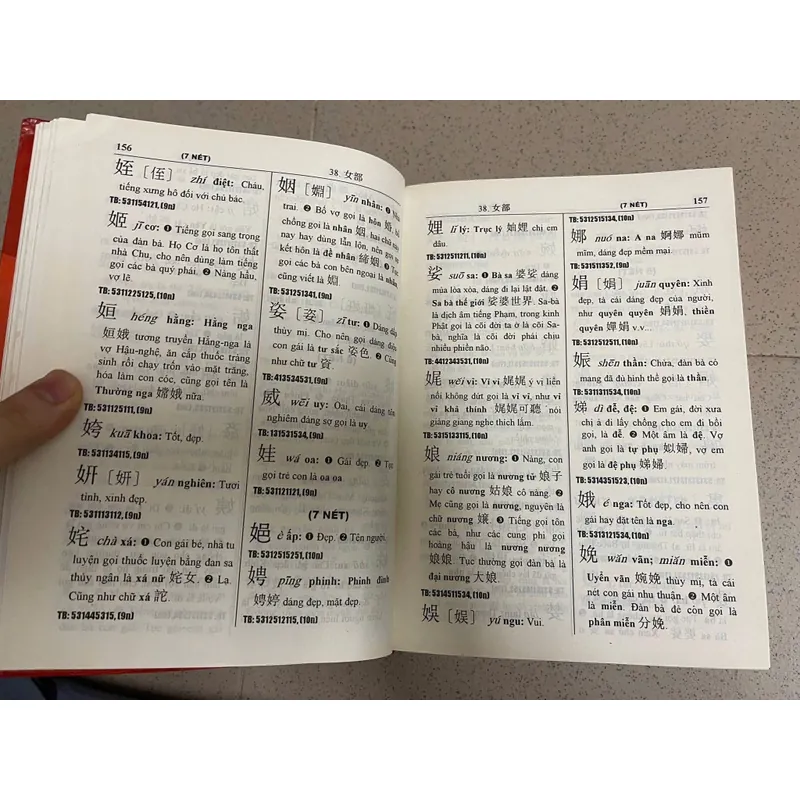 156
(7 NÉT)
38. 女部
姪 [侄] zhí điệt: Cháu,
tiếng xưng hô đối với chú bác.
TB: 531154121, (9n)
姬 jī cơ: ❶ Tiếng gọi sang trọng
của đàn bà. Họ Cơ là họ tôn thất
nhà Chu, cho nên dùng làm tiếng
gọi các bà quý phái. ❷ Nàng hầu,
vợ lẽ.
TB: 5311225125, (10n)
姮 héng hằng: Hằng nga
姮娥 tương truyền Hằng-nga là
vợ Hậu-nghệ, ăn cắp thuốc tràng
sinh rồi chạy trốn vào mặt trăng,
hóa làm con cóc, cũng gọi tên là
Thường nga 嫦娥 nữa.
TB: 531125111, (9n)
姱 kuā khoa: Tốt, đẹp.
TB: 531134115, (9n)
妍 [姸] yán nghiên: Tươi
tỉnh, xinh đẹp.
TB: 531113112, (9n)
姹 chà xá: ❶ Con gái bé, nhà tu
luyện gọi thuốc luyện bằng đan sa
thủy ngân là xá nữ 姹女. ❷ Lạ.
Cũng như chữ xá 詫.
TB: 531445315, (9n)
姻 [婣] yīn nhân: ❶
trai. ❷ Bố vợ gọi là hôn 婚, bố
chồng gọi là nhân 姻, hai chữ này
nay hay dùng lẫn lộn, nên gọi sự
kết hôn là đế nhân 締姻. ❸ Tục
gọi các bà con bên ngoại là nhân
cũng viết là 婣.
TB: 531251341, (9n)
姿 [姿] zī tư: ❶ Dáng dấp
thùy mị. Cho nên gọi dáng điệu
con gái là tư sắc 姿色. ❷ Cũng
như chữ tư 資.
TB: 413534531, (9n)
威 wēi uy: Oai, cái dáng tôn
nghiêm đáng sợ gọi là uy
TB: 1315531534, (9n)
娃 wá oa: ❶ Gái đẹp. ❷ Tục
gọi trẻ con là oa oa
TB: 531121121, (9n)
(7 NÉT)
娓 è ấp: ❶ Đẹp. ❷ Tên người.
TB: 5312515251, (10n)
娉 pīng phinh: Phinh đình
娉婷 dáng đẹp, mặt đẹp.
TB: 5312512115, (10n)
38. 女部
(7 NÉT)
157
娌 lǐ lý: Trục lý 妯娌 chị em
dâu.
TB: 5312511211, (10n)
娑 suō sa: ❶ Bà sa 婆娑 dáng
múa lòa xòa, dáng đi lại lật đật. ❷
Sa bà thế giới 娑婆世界. Sa-bà
là dịch âm tiếng Phạm, trong kinh
Phật gọi là cõi đời ta ở là cõi Sa-
bà, nghĩa là cõi đời phải chịu
nhiều phiền não.
TB: 4412343531, (10n)
娓 wěi vỉ: Vỉ vỉ 娓娓 ý vị liền
nối không dứt gọi là vỉ vỉ, như vỉ
vỉ khả thính 娓娓可聽 nói
giảng giang nghe thích lắm.
TB: 5315133115, (10n)
娘 niáng nương: ❶ Nàng, con
gái trẻ tuổi gọi là nương tử 娘子
hay cô nương 姑娘 cô nàng. ❷
Mẹ cũng gọi là nương, nguyên là
chữ nương 孃. ❸ Tiếng gọi tôn
các bà, như các cung phi gọi
hoàng hậu là nương nương
娘娘. Tục thường gọi đàn bà là
đại nương 大娘.
TB: 5314511534, (10n)
娛 [娱] yú ngu: Vui.
TB: 5312515134, (10n)
娜 nuó na: A na 婀娜 mũm
mĩm, dáng đẹp mềm mại.
TB: 531511352, (9n)
娟 [娟] juān quyên: Xinh
đẹp, tả cái dáng đẹp của người,
như quyên quyên 娟娟, thiền
quyên 嬋娟 v.v...
TB: 5312512511, (10n)
娠 shēn thần: Chửa, đàn bà có
mang đã đủ hình thể gọi là thần.
TB: 5311311534, (10n)
娣 dì đễ, đệ: ❶ Em gái, đời xưa
chị ả đi lấy chồng cho em đi
bồi gọi, là đễ. ❷ Một âm là đệ. Vợ
anh gọi là tự phụ 姒婦, vợ em
gọi là đệ phụ 娣婦.
TB: 5314351523, (10n)
娥 é nga: Tốt đẹp, cho nên con
gái hay đặt tên là nga.
TB: 5313121534, (10n)
娩 wǎn vãn; miǎn miễn: ❶
Uyển vãn 婉娩 thùy mị, tả cái
nét con gái nhu thuận. ❷ Một âm
là miễn. Đàn bà đẻ còn gọi là
phân miễn 分娩.